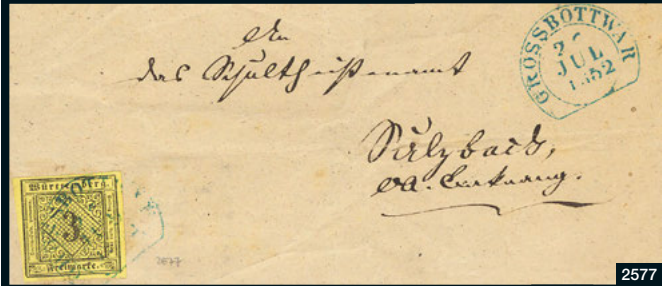 An
das Schultheißenamt
Sulzbach,
OA. Backnang.
GROSSBOTTWAR
26
JUL
1852
Württemberg.
3
Freimarke.
2577
2577